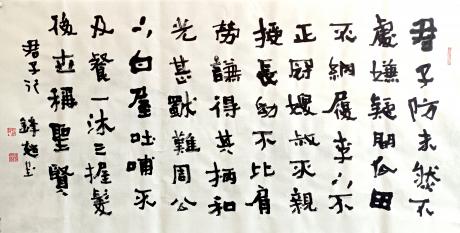 君子防未然不
處嫌疑間瓜田
不納履李下不
正冠嫂叔不親
授長幼不比肩
勞謙得其柄和
光甚獨難周公
下白屋吐哺不
及餐一沐三握髮
後世稱聖賢
君子行